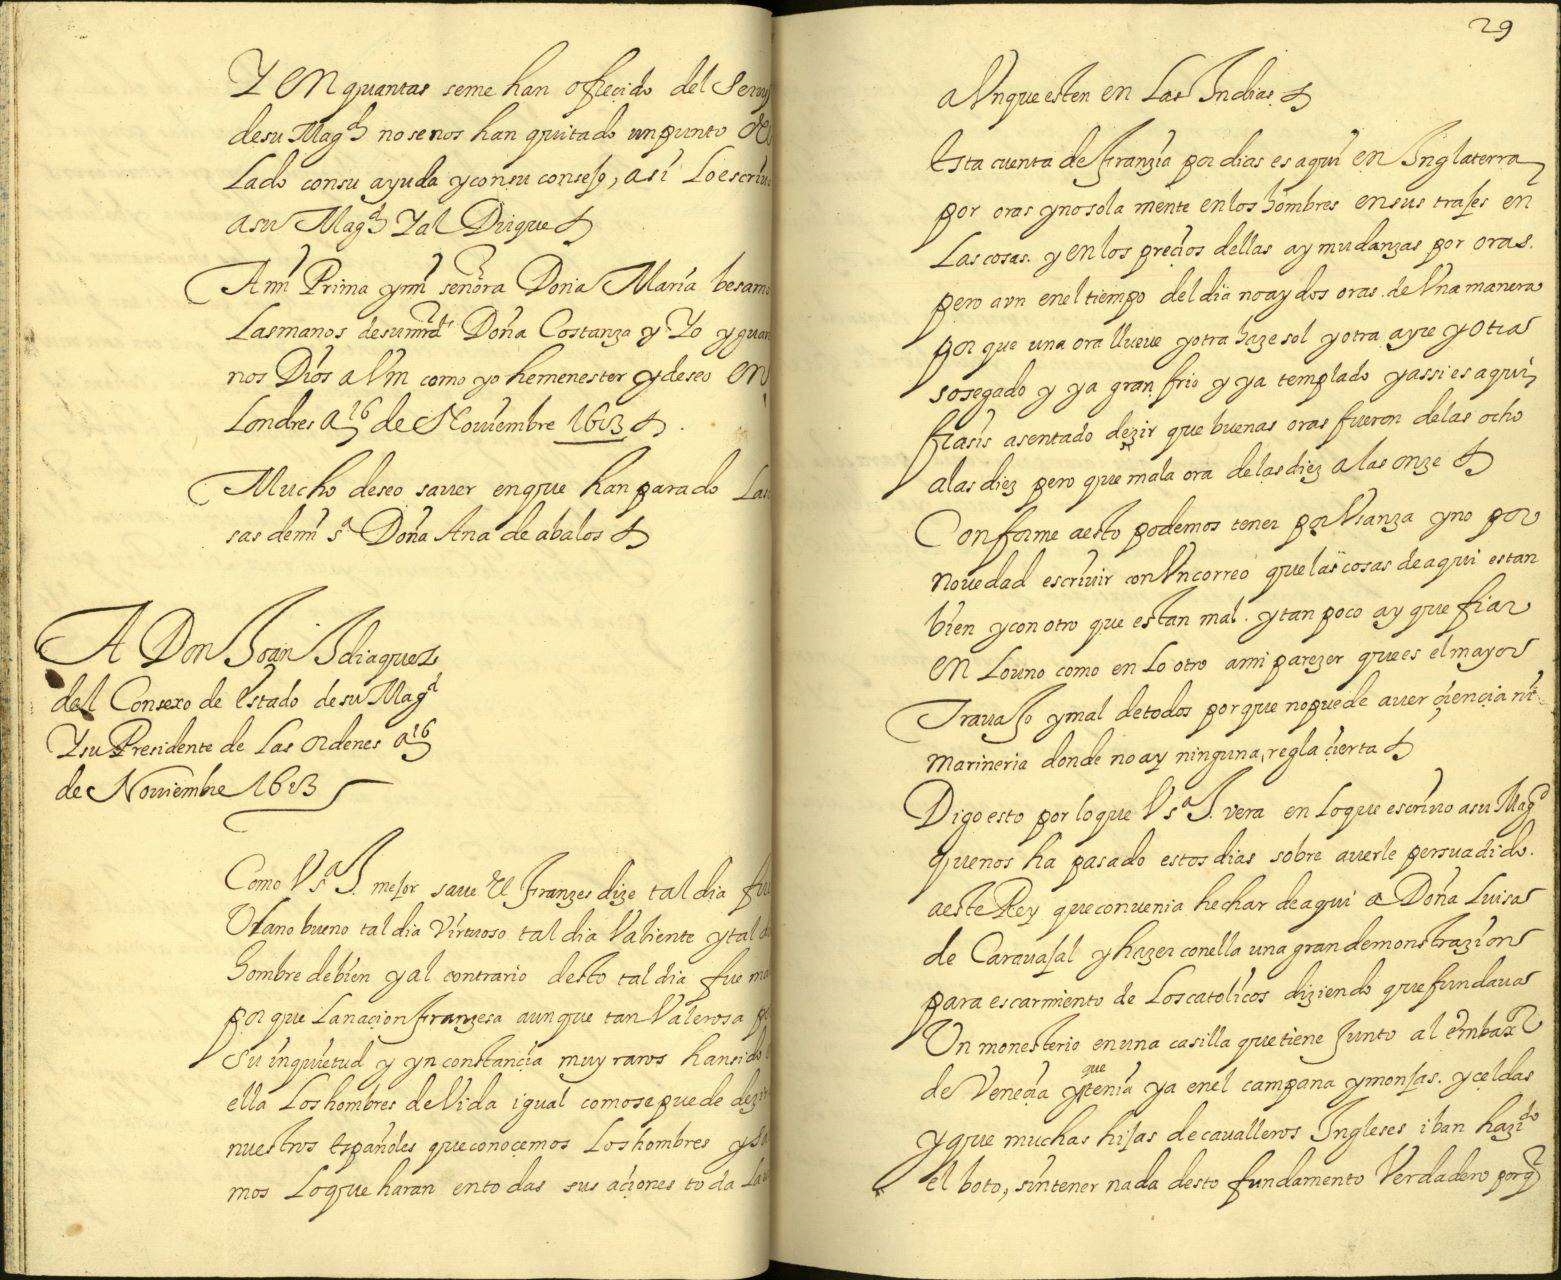 Y en quantas seme han ofrecido del Serui
desu Magd nosenos han quitado unpunto del
Lado consu ayuda yconsu consejo, así Loescriuo
asu Magd Yal Duque
Ami Prima ymi señora Doña Maria besamo
Lasmanos desumrd Doña Costanza y Yo yguar
nos Dios aVm como yo hemenester ydeseo En
Londres a 16 de Nouiembre 1613
Mucho deseo sauer enque han parado Las
sas demi sª Doña Ana de abalos
A Don Joan Idiaquez
del Consexo de estado desu Magd
Ysu Presidente de Las ordenes a 16
de Nouiembre 1613
Como Vsª I. mejor saue El franzes dize tal dia fue
Vlano bueno tal dia Virtuoso tal dia Valiente ytal
hombre debien yal contrario desto tal dia fue ma
porque Lanacion franzesa aunque tan Valerosa
Su inquietud y ynconstançia muy raros hansido
ella Loshombres deVida igual comosepuede dezir
nuestros Españoles queconoçemos Loshombres y
mos Loque haran ento das sus açiones toda La
29
aVnqueesten en Las Indias
Esta cuenta defranzia por dias es aqui en Inglaterra
por oras ynosola mente enlos hombres ensus trajes en
Lascosas. y enlos preçios dellas ay mudanzas por oras.
pero avn enel tiempo del dia noay dos oras. de Vna manera
por que una ora llueue yotra haze sol yotra ayre yotras
sosegado y ya gran frio y ya templado yassi es aqui
frasis asentado dezir que buenas oras fueron delas ocho
alas diez pero que mala ora delasdiez alas onze
Conforme aesto podemos tener por Vsanza yno por
nouedad escriuir conVncorreo que las cosas deaqui estan
bien yconotro que estan mal. ytan poco ay que fiar
en Louno como en Lo otro ami parezer quees elmayor
Trauajo ymal detodos porque nopuede auer çiencia ni
marineria donde noay ninguna, regla çierta
Digoesto por loque Vsª I. vera en Loque escriuo asu Magd
quenos ha pasado estosdias sobre auerle persuadido.
aeste Rey queconuenia hechar deaqui a Doña Luisa
de Carauajal yhazer conella una grandemonstrazion
para escarmiento de Loscatolicos diziendo que fundaua
Vn monesterio enuna casilla quetiene Junto al embaxor
de Veneçia y que tenia ya enel campana ymonjas. yceldas
yque muchas hijas decaualleros Ingleses iban hazido
el boto, sintener nada desto fundamento Verdadero porq